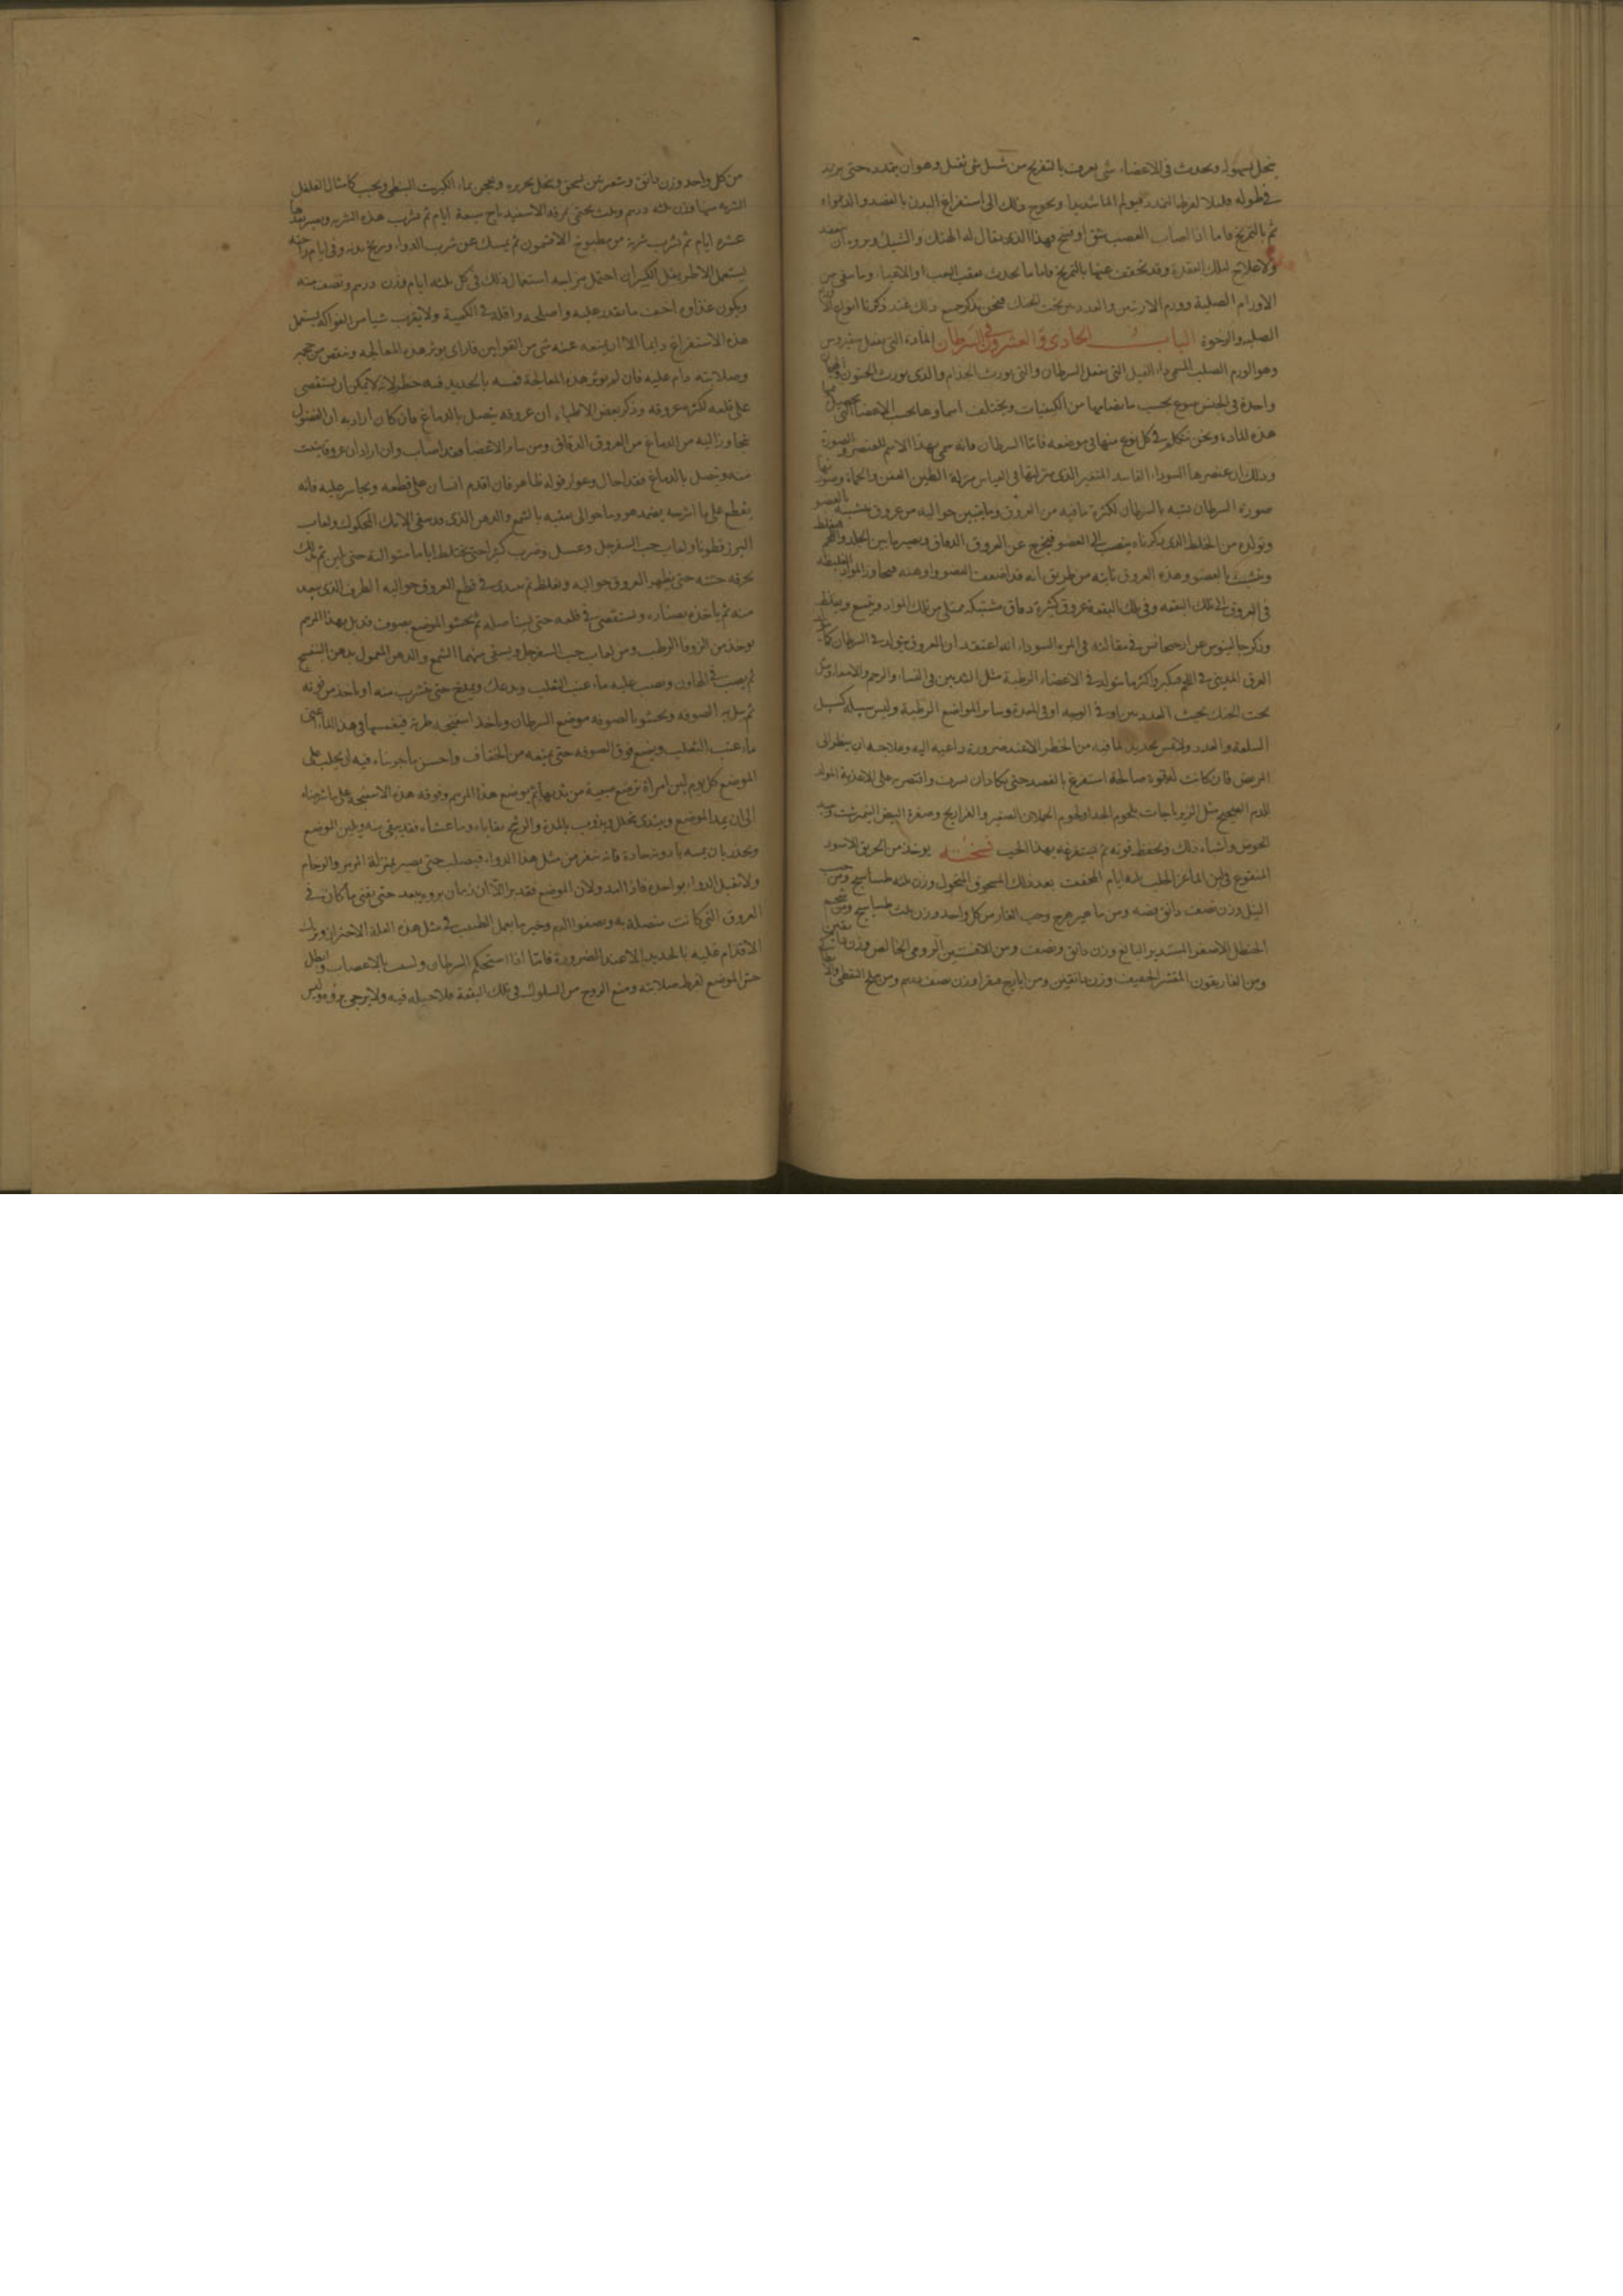 ينحل بسهولة ويحدث في الاعضاء شي يعرف بالتفريح من شيل شي ثقيل وهو ان يتمدد حتى يزيد
في طوله قليلا لفرط التمدد فيولم الما شديدا ويحوج ذلك الى استفراغ البدن بالفصد والدواء
ثم بالتمريخ فاما اذا اصاب العصب شق او فسخ فهذا الذي يقال له الهتك والشيل وبروه ان ينعقد
ولا علاج لتلك العقدة وقد تخفف عنها بالتمريخ فاما ما يحدث بعقب التعب او الاعياء وما بقي من
الاورام الصلبة وورم الارنبتين والغدد من تحت الحنك فنحن نذكر جميع ذلك عند ذكرنا انواع
الصلبة والرخوة الباب الحادي والعشرون في السرطان المادة التي يفعل سقيروس
وهو الورم الصلب المسمى داء الفيل التي يفعل السرطان والتي يورث الجذام والذي يورث الجنون
واحدة في الجنس يتنوع بحسب ما يضامها من الكيفيات ويختلف اسماوها بحسب الاعضا التي
هذه المادة ونحن نتكلم في كل نوع منها في موضعه فاما السرطان فانه سمي بهذا الاسم للعنصر والصورة
وذلك ان عنصرها السوداء الفاسد المتغير الذي منزلتها في القياس منزلة الطين العفن والحماة
صورة السرطان تشبه بالسرطان لكثرة ما فيه من العروق وما يتبين حواليه من عروق
وتولده من الخلط الذي ذكرناه ينصب الى العضو فيخرج عن العروق الدقاق ويصير ما بين الجلد واللحم
ويتشبث بالعضو وهذه العروق نابتة من طريق انه قد اضعف العضو واوهنه فيتجاوز المواد الغليظة
في العروق الى تلك البقعة وفي تلك البقعة عروق كثيرة دقاق مشتبكة تمتلي من تلك المواد ويتسع
وذكر جالينوس عن ارخيجانس في مقالته في المرة السوداء انه اعتقد ان العروق يتولد في السرطان
العرق المديني في اللحم فيكبر واكثر ما يتولد في الاعضاء الرطبة مثل الثديين في النساء والرحم والامعاء
تحت الحنك بحيث الغدد من او في الوجه او في المعدة وسائر المواضع الرطبة وليس سبيله كسبيل
السلعة والغدد ولا يمس بحديد لما فيه من الخطر الا عند ضرورة داعية اليه وعلاجه ان ينظر الى
المريض فان كانت له قوة صالحة استفرغ بالفصد حتى يكاد ان يسرف واقتصر على الاغذية المولد
للدم الصحيح مثل الزيرباجات بلحوم الجدا ولحوم الحملان الصغير والفراريج وصفرة البيض النيمرشت
الحوض واشباه ذلك ويحفظ قوته ثم يستفرغه بهذا الحب نسخته يوخذ من الخربق الاسود
المنقوع في لبن الماعز الحليب ثلثة ايام المجفف بعد ذلك المسحوق المنخول وزن ثلثة طساسيج ومن حب
النيل وزن نصف دانق فضة ومن ماهيزهرج وحب الغار من كل واحد وزن ثلث طساسيج ومن شحم
الحنظل الاصفر المستدير البالغ وزن دانق ونصف ومن الافسنتين الرومي الخالص وزن دانقين
ومن الغاريقون المقشر الخفيف وزن دانقين ومن ايارج فيقرا وزن نصف درهم ومن ملح النفطي
من كل واحد وزن دانق وشعيرتين يسحق وينخل بحريرة ويعجن بماء الكبريت النبطي ويحبب كامثال الفلفل
الشربة منها وزن ثلثة درهم وثلث يحتمي بمرقة الاسفيدباج سبعة ايام ثم يشرب هذه الشربة ويصبر بعدها
عشرة ايام ثم يشرب شربة من مطبوخ الافتيمون ثم يمسك عن شرب الدواء ويريح بدنه وفي ايام راحته
يستعمل الاطريفل الكبير ان احتمل مزاجه استعمال ذلك في كل ثلثة ايام وزن درهم ونصف منه
ويكون غذاوه اخف ما يقدر عليه واصلحه واقله في الكمية ولا يقرب شيا من الفواكه يستعمل
هذه الاستفراغ دايما الا ان يمنعه عنه شي من القوانين فان راى يوثر هذه المعالجة وينقص من حجمه
وصلابته دام عليه فان لم يوثر هذه المعالجة فمسه بالحديد فيه خطر لانه لا يمكن ان يستقصى
على قلعه لكثرة عروقه وذكر بعض الاطباء ان عروقه يتصل بالدماغ فان كان اراد به ان الفضول
يتجاوز اليه من الدماغ من العروق الدقاق ومن سائر الاعضا فقد اصاب وان اراد ان عروقا ينبت
منه ويتصل بالدماغ فقد احال وعوار قوله ظاهر فان اقدم انسان على قطعه وتجاسر عليه فانه
يقطع على ما انرسمه يضمد هو وما حوالى معقبه بالشمع والدهن الذي قد سقي الانك المحكوك ولعاب
البزر قطونا ولعاب حب السفرجل وعسل وضرب كثيرا حتى يختلط اياما متوالية حتى يلين ثم يدلك
بخرقة خشنة حتى يظهر العروق حواليه ويغلظ ثم يبتدى في قطع العروق حواليه الطرف الذي يبعد
منه ثم ياخذه بصنارة ويستقصى في قلعه حتى يستاصله ثم يحشو الموضع بصوف قد بل بهذا المرهم
يوخذ من الزوفا الرطب ومن لعاب حب السفرجل ويسقى منهما الشمع والدهن المعمول بدهن البنفسج
ثم يصب في الهاون ويصب عليه ماء عنب الثعلب ويدعك ويدمخ حتى يتشرب منه او ياخذ من قوته
ثم يبل به الصوفة ويحشو بالصوفة موضع السرطان وياخذ اسفنجة طرية فيغمسها في هذا الماء اعني
ماء عنب الثعلب ويضع فوق الصوفة حتى يمنعه من الجفاف واحسن ما جربناه فيه ان يحلب على
الموضع كل يوم لبن امراة ترضع صبية من ثديها ثم يوضع هذا المرهم وفوقه هذه الاسفنجة على ما شرحناه
الى ان يمد الموضع ويبتدى يتحلل ويذوب بالمدة والوسخ بقاياه وما عشاه فقد يبقى منه ويلين الموضع
ويحذر بان يمسه بادوية حادة فانه ينفر من مثل هذا الدواء فيصلب حتى يصير بمنزلة المرمر والرخام
ولا يقبل الدواء بواحدة فاذا امد ولان الموضع فقد برا الا ان زمان بروه يبعد حتى يفنى ما كان في
العروق التي كانت متصلة به ويصفوا الدم وخير ما يعمل الطبيب في مثل هذه العلة الاحتراز وترك
الاقدام عليه بالحديد الا عند الضرورة فاما اذا استحكم السرطان وليست بالاعصاب وابطل
حس الموضع لفرط صلابته ومنع الروح من السلوك في تلك البقعة فلا حيلة فيه ولا يرجى بروه وليس